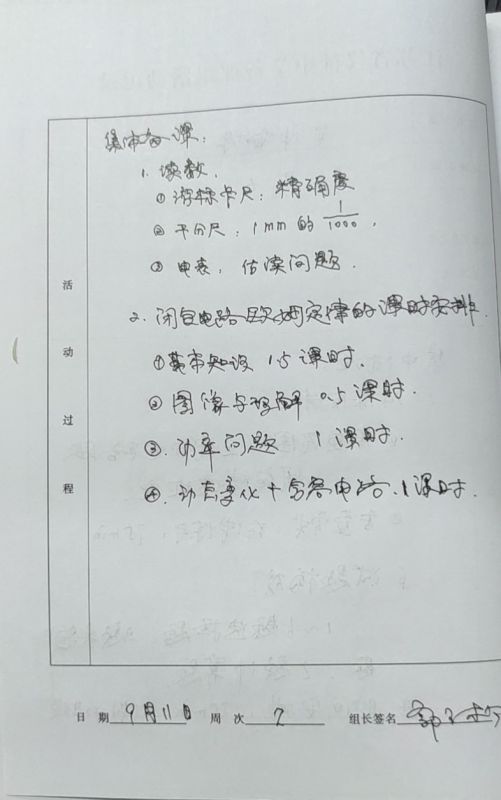 集体备课：
1. 读数.
① 游标卡尺：精确度
② 千分尺：1mm 的 1/1000，
③ 电表，估读问题.
2. 闭合电路欧姆定律的课时安排.
① 基本知识 1.5 课时.
② 图像与理解 0.5 课时.
③. 功率问题 1 课时.
④. 动态变化 + 含容电路. 1 课时.
活动过程
日 期 9月11日 周 次 2 组长签名